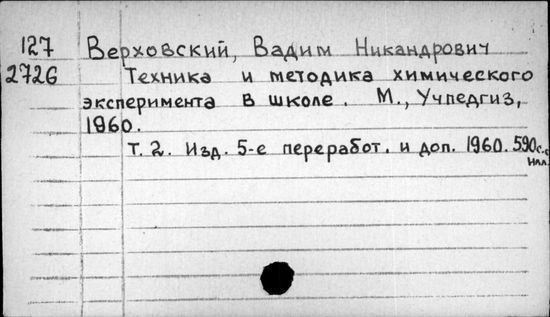 127 Верховский, Вадим Никандрович
2726 Техника и методика химического
эксперимента в школе. М., Учпедгиз,
1960.
т. 2. Изд. 5-е переработ. и доп. 1960. 590с. с
илл.